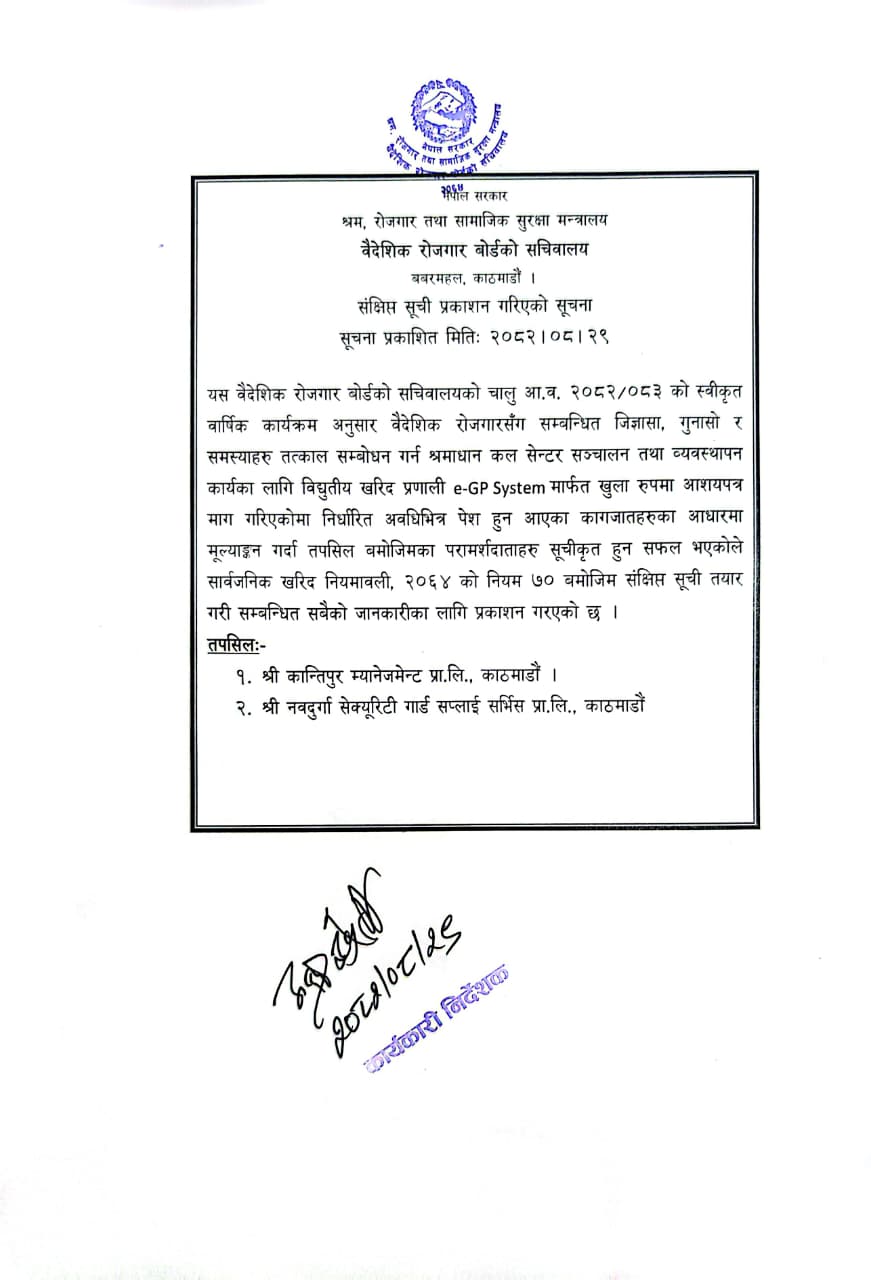 नेपाल सरकार
श्रम, रोजगार तथा सामाजिक सुरक्षा मन्त्रालय
वैदेशिक रोजगार बोर्डको सचिवालय
२०६४
नेपाल सरकार
श्रम, रोजगार तथा सामाजिक सुरक्षा मन्त्रालय
वैदेशिक रोजगार बोर्डको सचिवालय
बबरमहल, काठमाडौं ।
संक्षिप्त सूची प्रकाशन गरिएको सूचना
सूचना प्रकाशित मितिः २०८२।०८।२९
यस वैदेशिक रोजगार बोर्डको सचिवालयको चालु आ.व. २०८२/०८३ को स्वीकृत
वार्षिक कार्यक्रम अनुसार वैदेशिक रोजगारसँग सम्बन्धित जिज्ञासा, गुनासो र
समस्याहरु तत्काल सम्बोधन गर्न श्रमाधान कल सेन्टर सञ्चालन तथा व्यवस्थापन
कार्यका लागि विद्युतीय खरिद प्रणाली e-GP System मार्फत खुला रुपमा आशयपत्र
माग गरिएकोमा निर्धारित अवधिभित्र पेश हुन आएका कागजातहरुका आधारमा
मूल्याङ्कन गर्दा तपसिल बमोजिमका परामर्शदाताहरु सूचीकृत हुन सफल भएकोले
सार्वजनिक खरिद नियमावली, २०६४ को नियम ७० बमोजिम संक्षिप्त सूची तयार
गरी सम्बन्धित सबैको जानकारीका लागि प्रकाशन गरएको छ ।
तपसिलः-
१. श्री कान्तिपुर म्यानेजमेन्ट प्रा.लि., काठमाडौं ।
२. श्री नवदुर्गा सेक्यूरिटी गार्ड सप्लाई सर्भिस प्रा.लि., काठमाडौं
२०८२/०८/२९
कार्यकारी निर्देशक